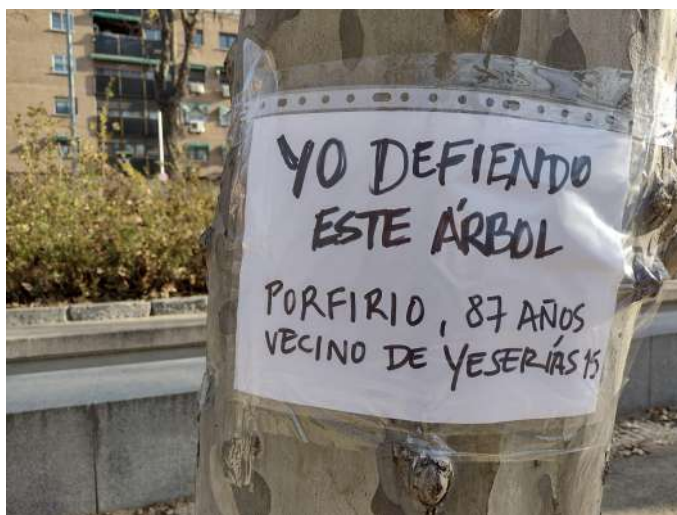 YO DEFIENDO
ESTE ÁRBOL
PORFIRIO, 87 AÑOS
VECINO DE YESERÍAS 15